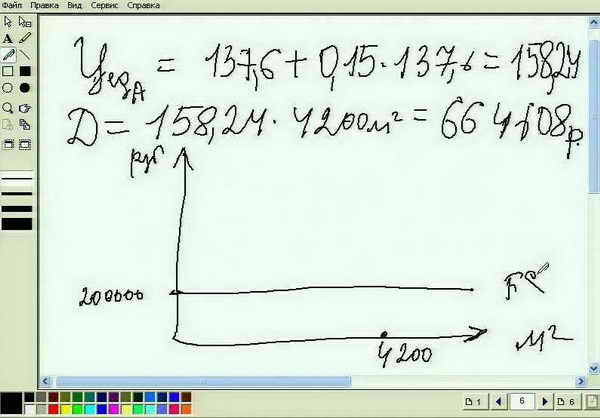 Файл Правка Вид Сервис Справка
Цед А = 137,6 + 0,15 · 137,6 = 158,24
Д = 158,24 · 4200 м² = 664608 р.
руб
200000
4200
м²
1 6 6